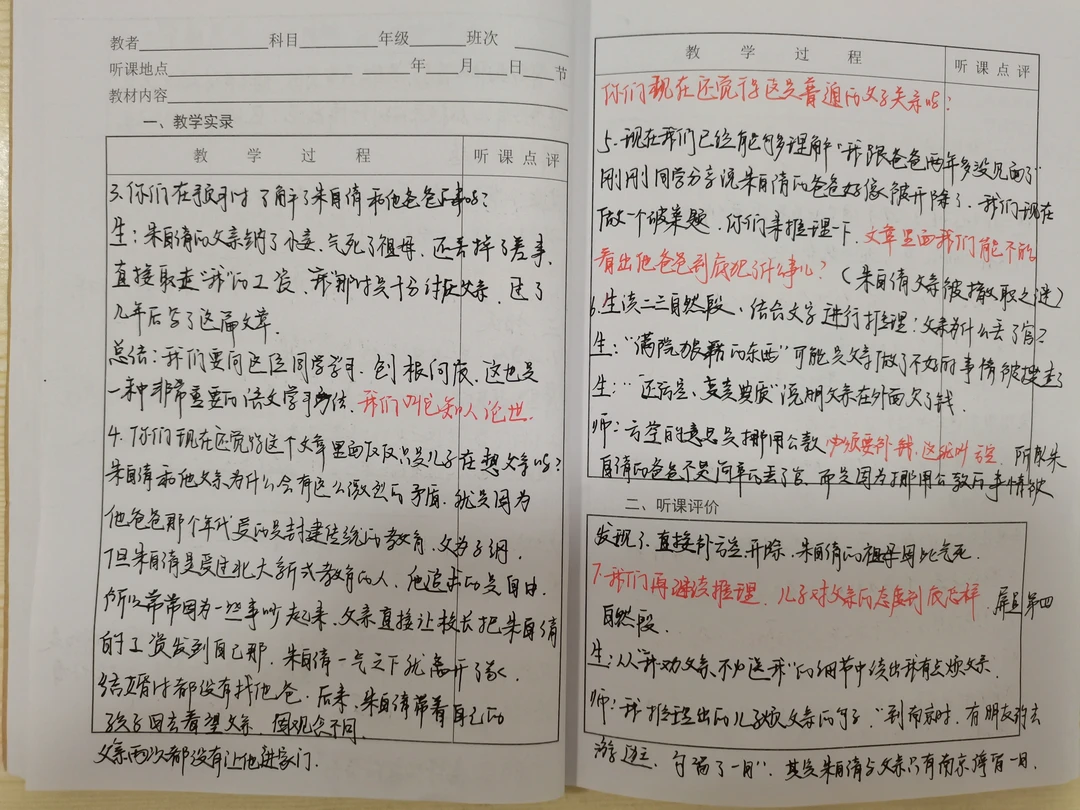 教者 科目 年级 班次
听课地点 年 月 日 节
教材内容
一、教学实录
教学过程 听课点评
3.你们在预习时了解了朱自清和他爸爸的事吗?
生:朱自清的父亲纳了小妾、气死了祖母、还丢掉了差事,
直接取走“我”的工资,我那时是十分讨厌父亲,过了
几年后写了这篇文章.
总结:我们要向这位同学学习,刨根问底,这也是
一种非常重要的语文学习方法.我们叫它知人论世.
4.你们现在还觉得这个文章里面仅仅只是儿子在想父亲吗?
朱自清和他父亲为什么会有这么激烈的矛盾.就是因为
他爸爸那个年代受的是封建传统的教育,父为子纲,
但朱自清是受过北大新式教育的人,他追求的是自由,
所以常常因为一些事吵起来,父亲直接让校长把朱自清
的工资发到自己那,朱自清一气之下就离开了家.
结婚时都没有找他爸,后来,朱自清带着自己的
孩子回去看望父亲,因观念不同.
父亲两次都没有让他进家门.
教学过程 听课点评
你们现在还觉得这是普通的父子关系吗?
5.现在我们已经能够多理解“我跟爸爸两年多没见面了”
刚刚同学分享说朱自清的爸爸好像被开除了.我们现在
做一个破案题,你们来推理一下.文章里面我们能不能
看出他爸爸到底犯了什么事儿?(朱自清父亲被撤职之谜)
6.生读二三自然段、结合文字进行推理:父亲为什么丢了官?
生:“满院狼藉的东西”可能是父亲做了不好的事情被搜查了
生:“还亏空、变卖典质”说明父亲在外面欠了钱.
师:亏空的意思是挪用公款 必须要补钱,这就叫亏空.所以朱
自清的爸爸不是简单的丢了官,而是因为挪用公款的事情被
二、听课评价
发现了.直接补亏空、开除,朱自清的祖母因此气死.
7.我们再继续推理.儿子对父亲的态度到底怎样.屏显第四
自然段.
生:从“我劝父亲不必送我”的细节中读出我有点烦父亲.
师:我推理出的儿子烦父亲的句子.“到南京时,有朋友约去
游逛,勾留了一日”,其实朱自清与父亲只有南京停留一日.